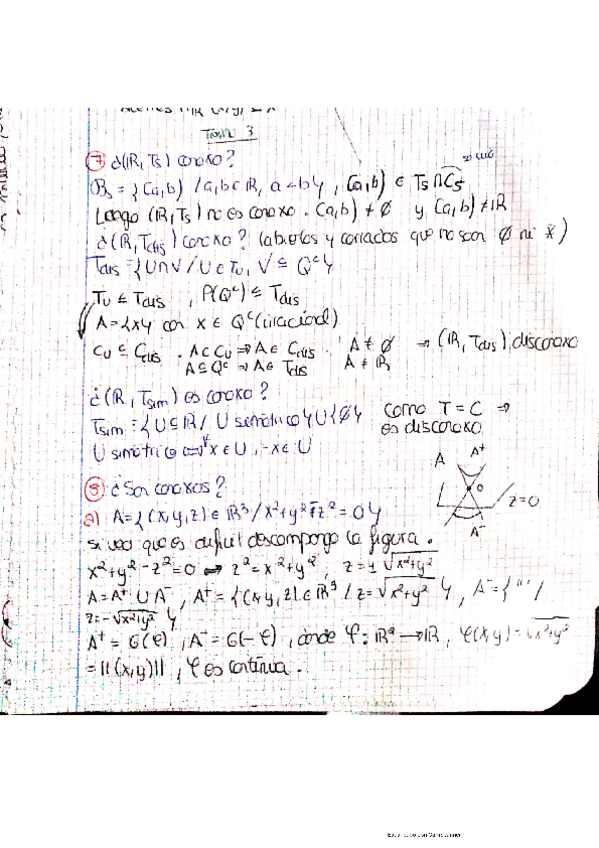 Tema 3
⑦ ¿(ℝ, Ts) conexo?
Bs = {[a,b) / a,b ∈ ℝ, a < b}, [a,b) ∈ Ts ∩ Cs
Luego (ℝ, Ts) no es conexo. [a,b) ≠ ∅ y [a,b) ≠ ℝ
¿(ℝ, Tdis) conexo? (abiertos y cerrados que no sean ∅ ni X)
Tdis = {U ∩ V / U ∈ Tu, V ⊆ Qᶜ}
Tu ⊆ Tdis, P(Qᶜ) ⊆ Tdis
A = {x} con x ∈ Qᶜ (irracional)
Cu ⊆ Cdis · A ∈ Cu ⇒ A ∈ Cdis · A ≠ ∅ → (ℝ, Tdis) disconexo
A ⊆ Qᶜ ⇒ A ∈ Tdis A ≠ ℝ
¿(ℝ, Tsim) es conexo?
Tsim = {U ⊆ ℝ / U simétrico} ∪ {∅} como T = C ⇒ es disconexo
U simétrico ⇔ ∀x ∈ U, -x ∈ U
⑧ ¿Son conexos?
A A⁺ 0 z=0 A⁻
a) A = {(x,y,z) ∈ ℝ³ / x²+y²-z² = 0}
si veo que es difícil descompongo la figura.
x²+y²-z²=0 ⇒ z² = x²+y², z = ± √x²+y²
A = A⁺ ∪ A⁻, A⁺ = {(x,y,z) ∈ ℝ³ / z = √x²+y²}, A⁻ = { " " /
z = -√x²+y² }
A⁺ = G(φ), A⁻ = G(-φ), donde φ: ℝ² → ℝ, φ(x,y) = √x²+y²
= ||(x,y)||, φ es continua.